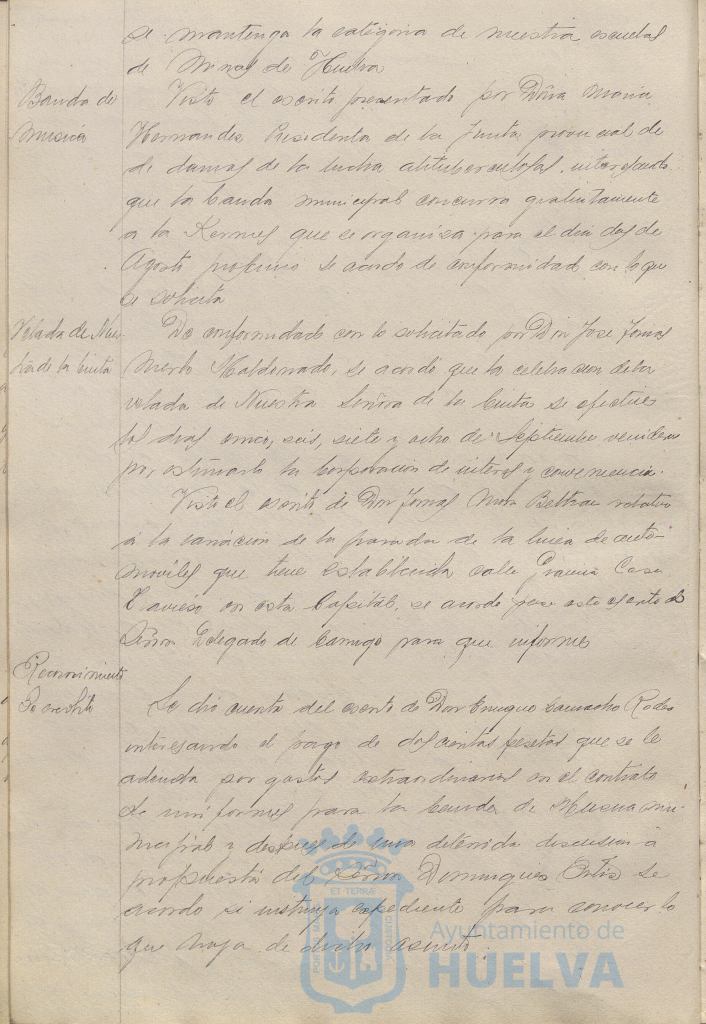 se mantenga la categoria de nuestra escuela
de Minas de Huelva
Banda de
Musica
Visto el escrito presentado por Doña Maria
Hernandez Presidenta de la Junta provincial de
de damas de la lucha atituberculosa, interesando
que la banda municipal concurra gratuitamente
a la Kermes que se organiza para el dia dos de
Agosto proximo se acordo de conformidad con lo que
se solicita
Velada de Nues-
tra de la Cinta
De conformidad con lo solicitado por Don Jose Tomas
Merlo Maldonado, se acordó que la celebracion de la
velada de Nuestra Señora de la Cinta se efectue
los dias cinco, seis, siete y ocho de Septiembre venidero
por estimarlo la Corporacion de interes y conveniencia.
Visto el escrito de Don Tomas Mora Beltran relativo
á la variacion de la parada de la linea de auto-
moviles que tiene establecida calle Gracia Casa
Travieso en esta Capital, se acordo pase este escrito al
Señor Delegado de para que informe
Reconocimiento
de credito
Se dio cuenta del escrito de Don Enrique Camacho Rodes
interesando el pago de doscientas pesetas que se le
adeuda por gastos extraordinarios en el contrato
de uniformes para la banda de Musica mu-
nicipal y despues de una detenida discusion á
propuesta del Señor Dominguez Ortiz se
acordo se instruya expediente para conocer lo
que haya de dicho asunto.
Ayuntamiento de
HUELVA